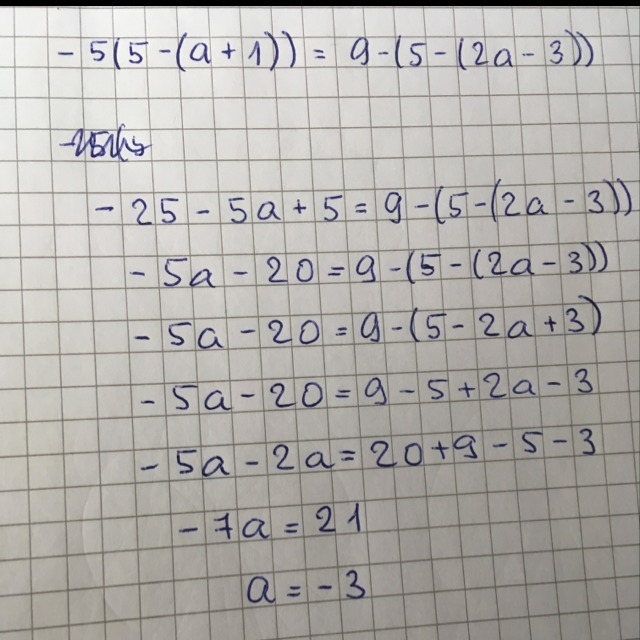 - 5(5-(a+1)) = 9-(5-(2a-3))
- 25 - 5a + 5 = 9-(5-(2a-3))
- 5a - 20 = 9-(5-(2a-3))
- 5a - 20 = 9-(5-2a+3)
- 5a - 20 = 9 - 5 + 2a - 3
- 5a - 2a = 20 + 9 - 5 - 3
- 7a = 21
a = - 3